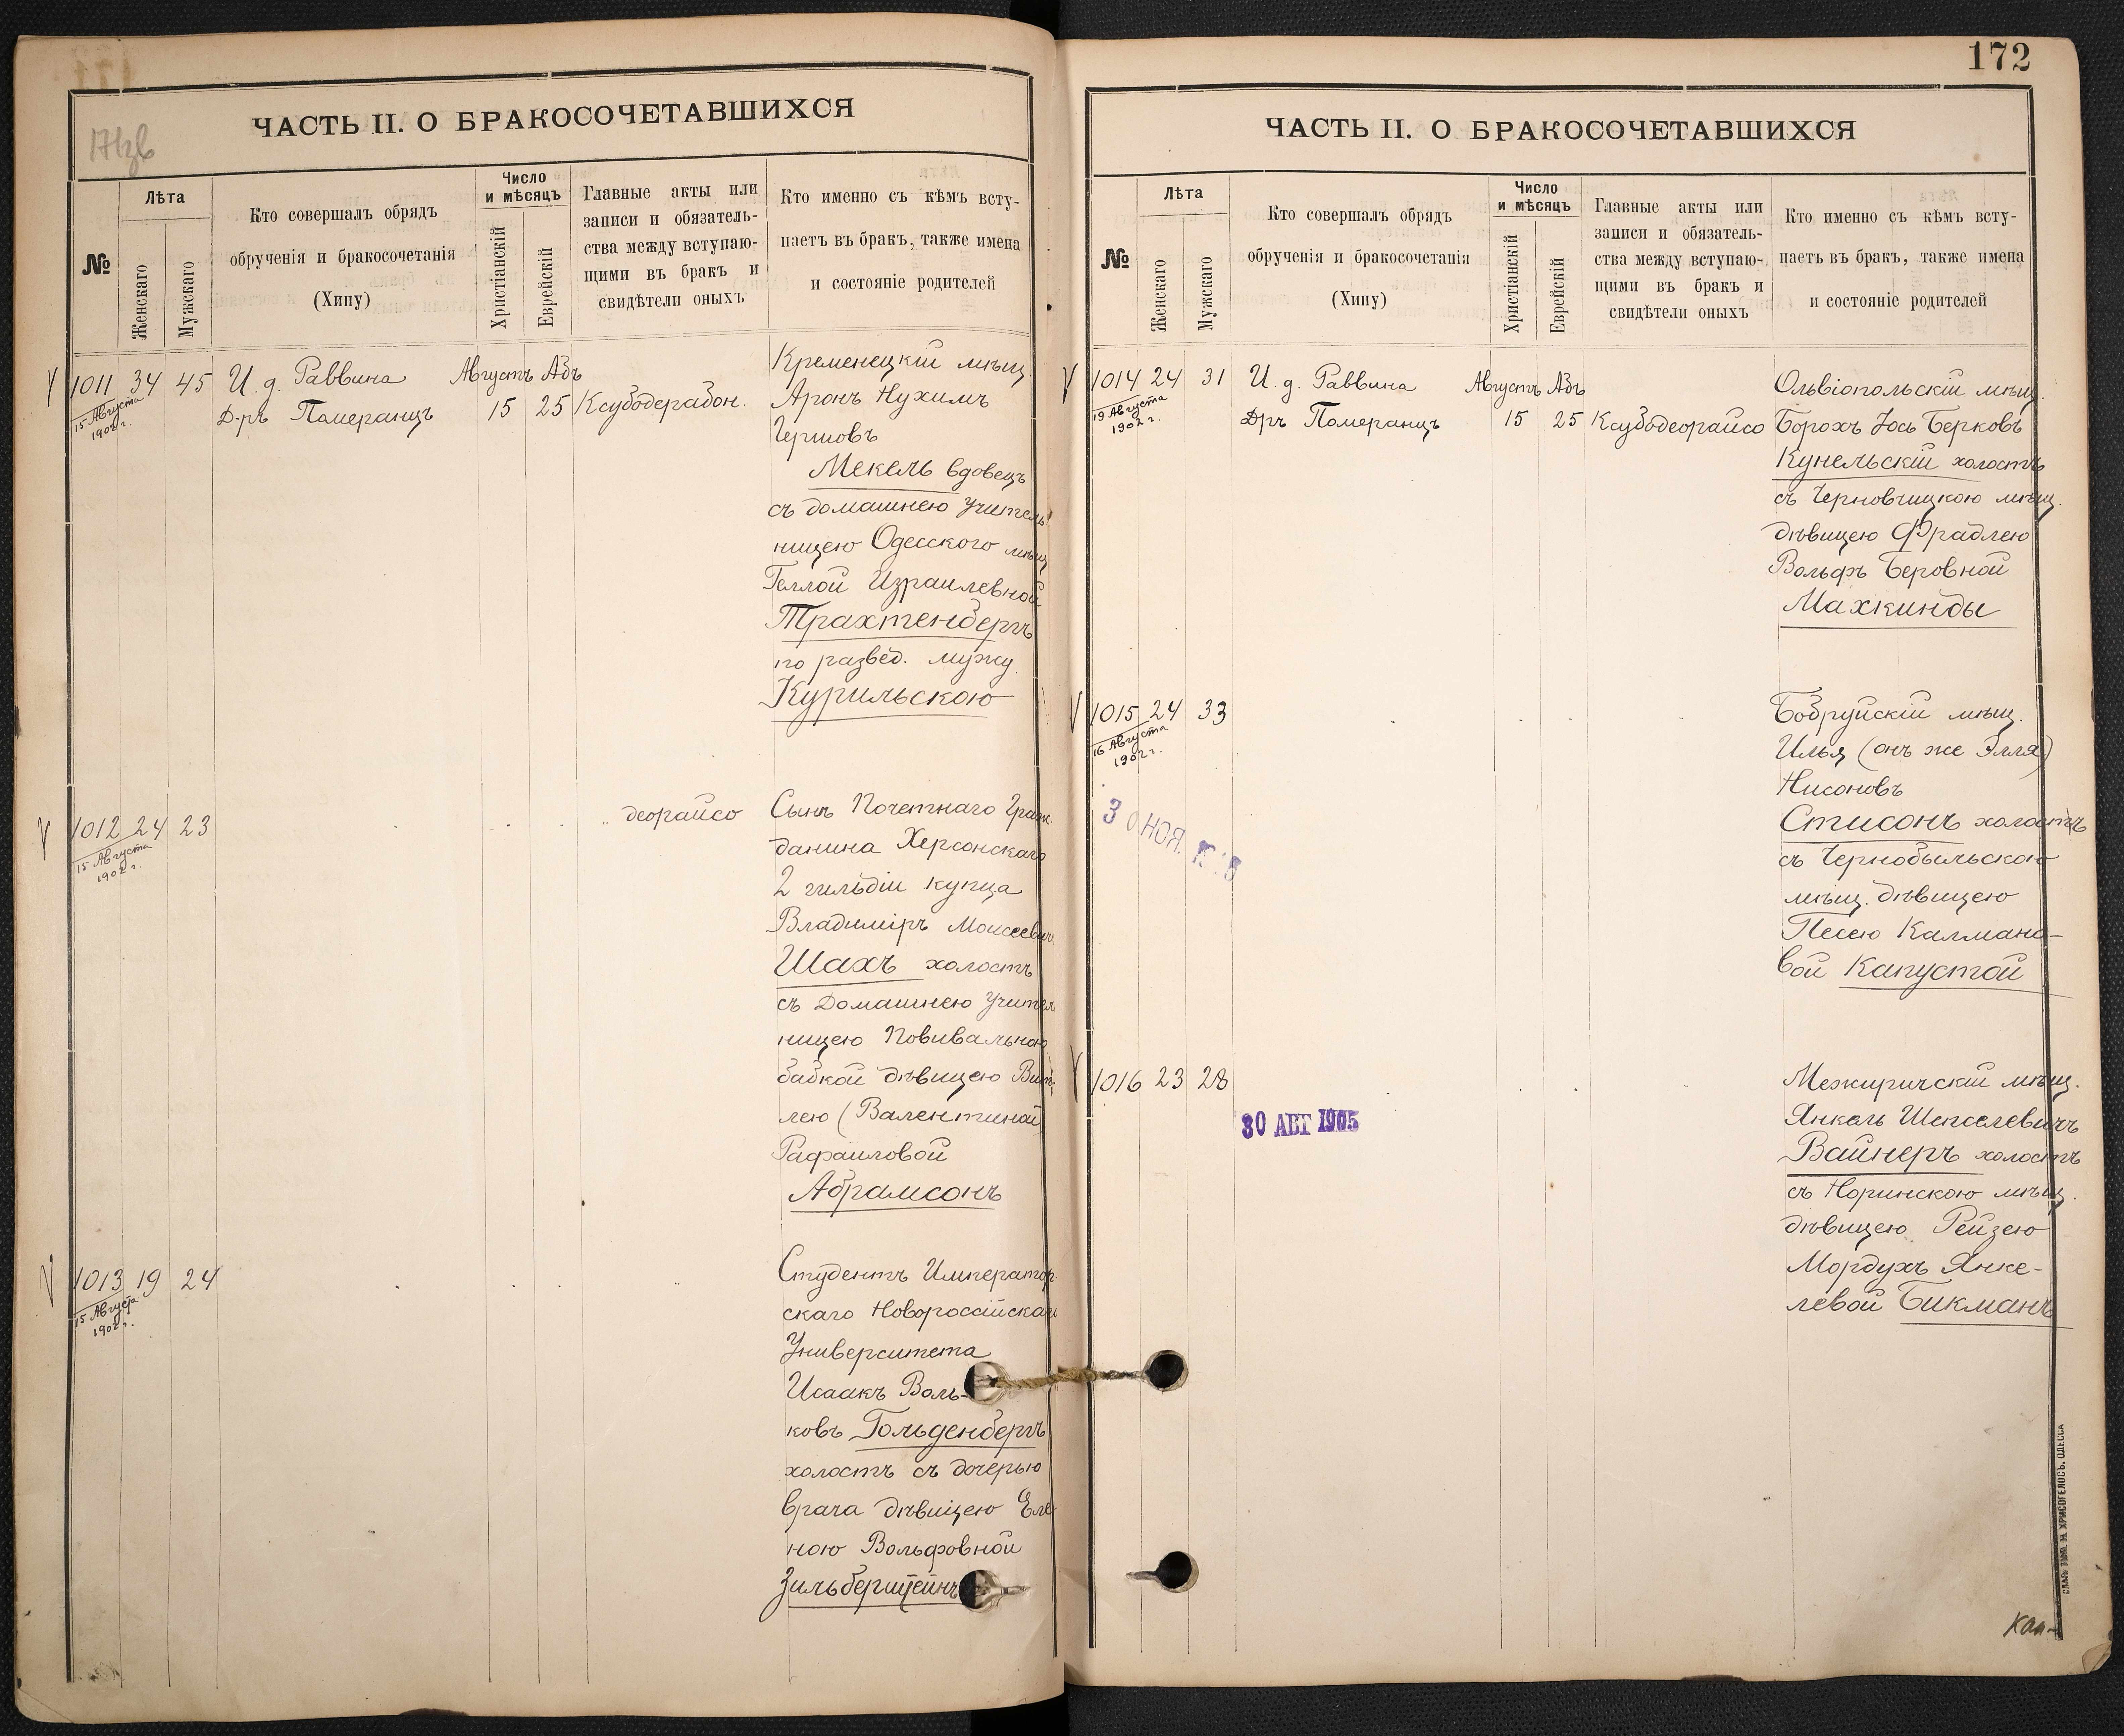 171зв
ЧАСТЬ II. О БРАКОСОЧЕТАВШИХСЯ
№
Лѣта
Женскаго
Мужскаго
Кто совершалъ обрядъ
обрученія и бракосочетанія
(Хипу)
Число
и мѣсяцъ
Христіанскій
Еврейскій
Главные акты или
записи и обязатель-
ства между вступаю-
щими въ бракъ и
свидѣтели оныхъ
Кто именно съ кѣмъ всту-
паетъ въ бракъ, также имена
и состояніе родителей
1011 34 45 И. д. Раввина Августъ Абъ
15 Августа
1902 г.
Д-ръ Померанцъ 15 25 Ксубодерабон.
Кременецкій мѣщ.
Аронъ Нухимъ
Гершовъ
Мекель вдовецъ
съ домашнею учитель
ницею Одесского мѣщ
Геллой Израилевной
Трахтенбергъ
по развед. мужу
Курильскою
1012 24 23 " деорайсо
15 Августа
1902 г.
Сынъ Почетнаго Граж
данина Херсонскаго
2 гильдіи купца
Владиміръ Моисеевич
Шахъ холостъ
съ Домашнею учител
ницею Повивальною
бабкой дѣвицею Вит-
лею (Валентиной)
Рафаиловой
Абрамсонъ
1013 19 24 "
15 Августа
1902 г.
Студентъ Император
скаго Новороссійскаго
Университета
Исаакъ Воль-
ковъ Гольденбергъ
холостъ съ дочерью
врача дѣвицею Еле
ною Вольфовной
Зильберштейнъ
172
ЧАСТЬ II. О БРАКОСОЧЕТАВШИХСЯ
№
Лѣта
Женскаго
Мужскаго
Кто совершалъ обрядъ
обрученія и бракосочетанія
(Хипу)
Число
и мѣсяцъ
Христіанскій
Еврейскій
Главные акты или
записи и обязатель-
ства между вступаю-
щими въ бракъ и
свидѣтели оныхъ
Кто именно съ кѣмъ всту-
паетъ въ бракъ, также имена
и состояніе родителей
1014 24 31 И. д. Раввина Августъ Абъ
19 Августа
1902 г.
Дръ Померанцъ 15 25 Ксубодеорайсо
Ольвіопольскій мѣщ.
Борохъ Іось Берковъ
Кунельскій холостъ
съ Черновицкою мѣщ.
дѣвицею Фрадлею
Вольфъ Беровной
Махкинды
1015 24 33
16 Августа
1902 г.
Бобруйскій мѣщ.
Илья (онъ же Элля)
Нисоновъ
Стисонъ холостъ
съ Чернобыльскою
мѣщ. дѣвицею
Песею Калмано-
вой Капустой
3 0 НОЯ.
1016 23 28
30 АВГ 1905
Межиричскій мѣщ.
Янкель Шепселевичъ
Вайнеръ холостъ
съ Норинскою мѣщ.
дѣвицею Рейзею
Мордухъ Янке-
левой Бикманъ
СЛАВ. ТИПО. Н. ХРИСОГЕЛОСЪ, ОДЕССА